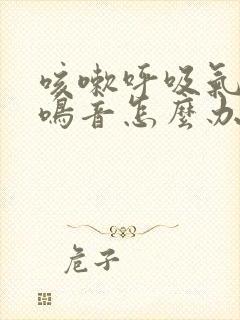 咳嗽呼吸氣
鳴音怎麼办
危子